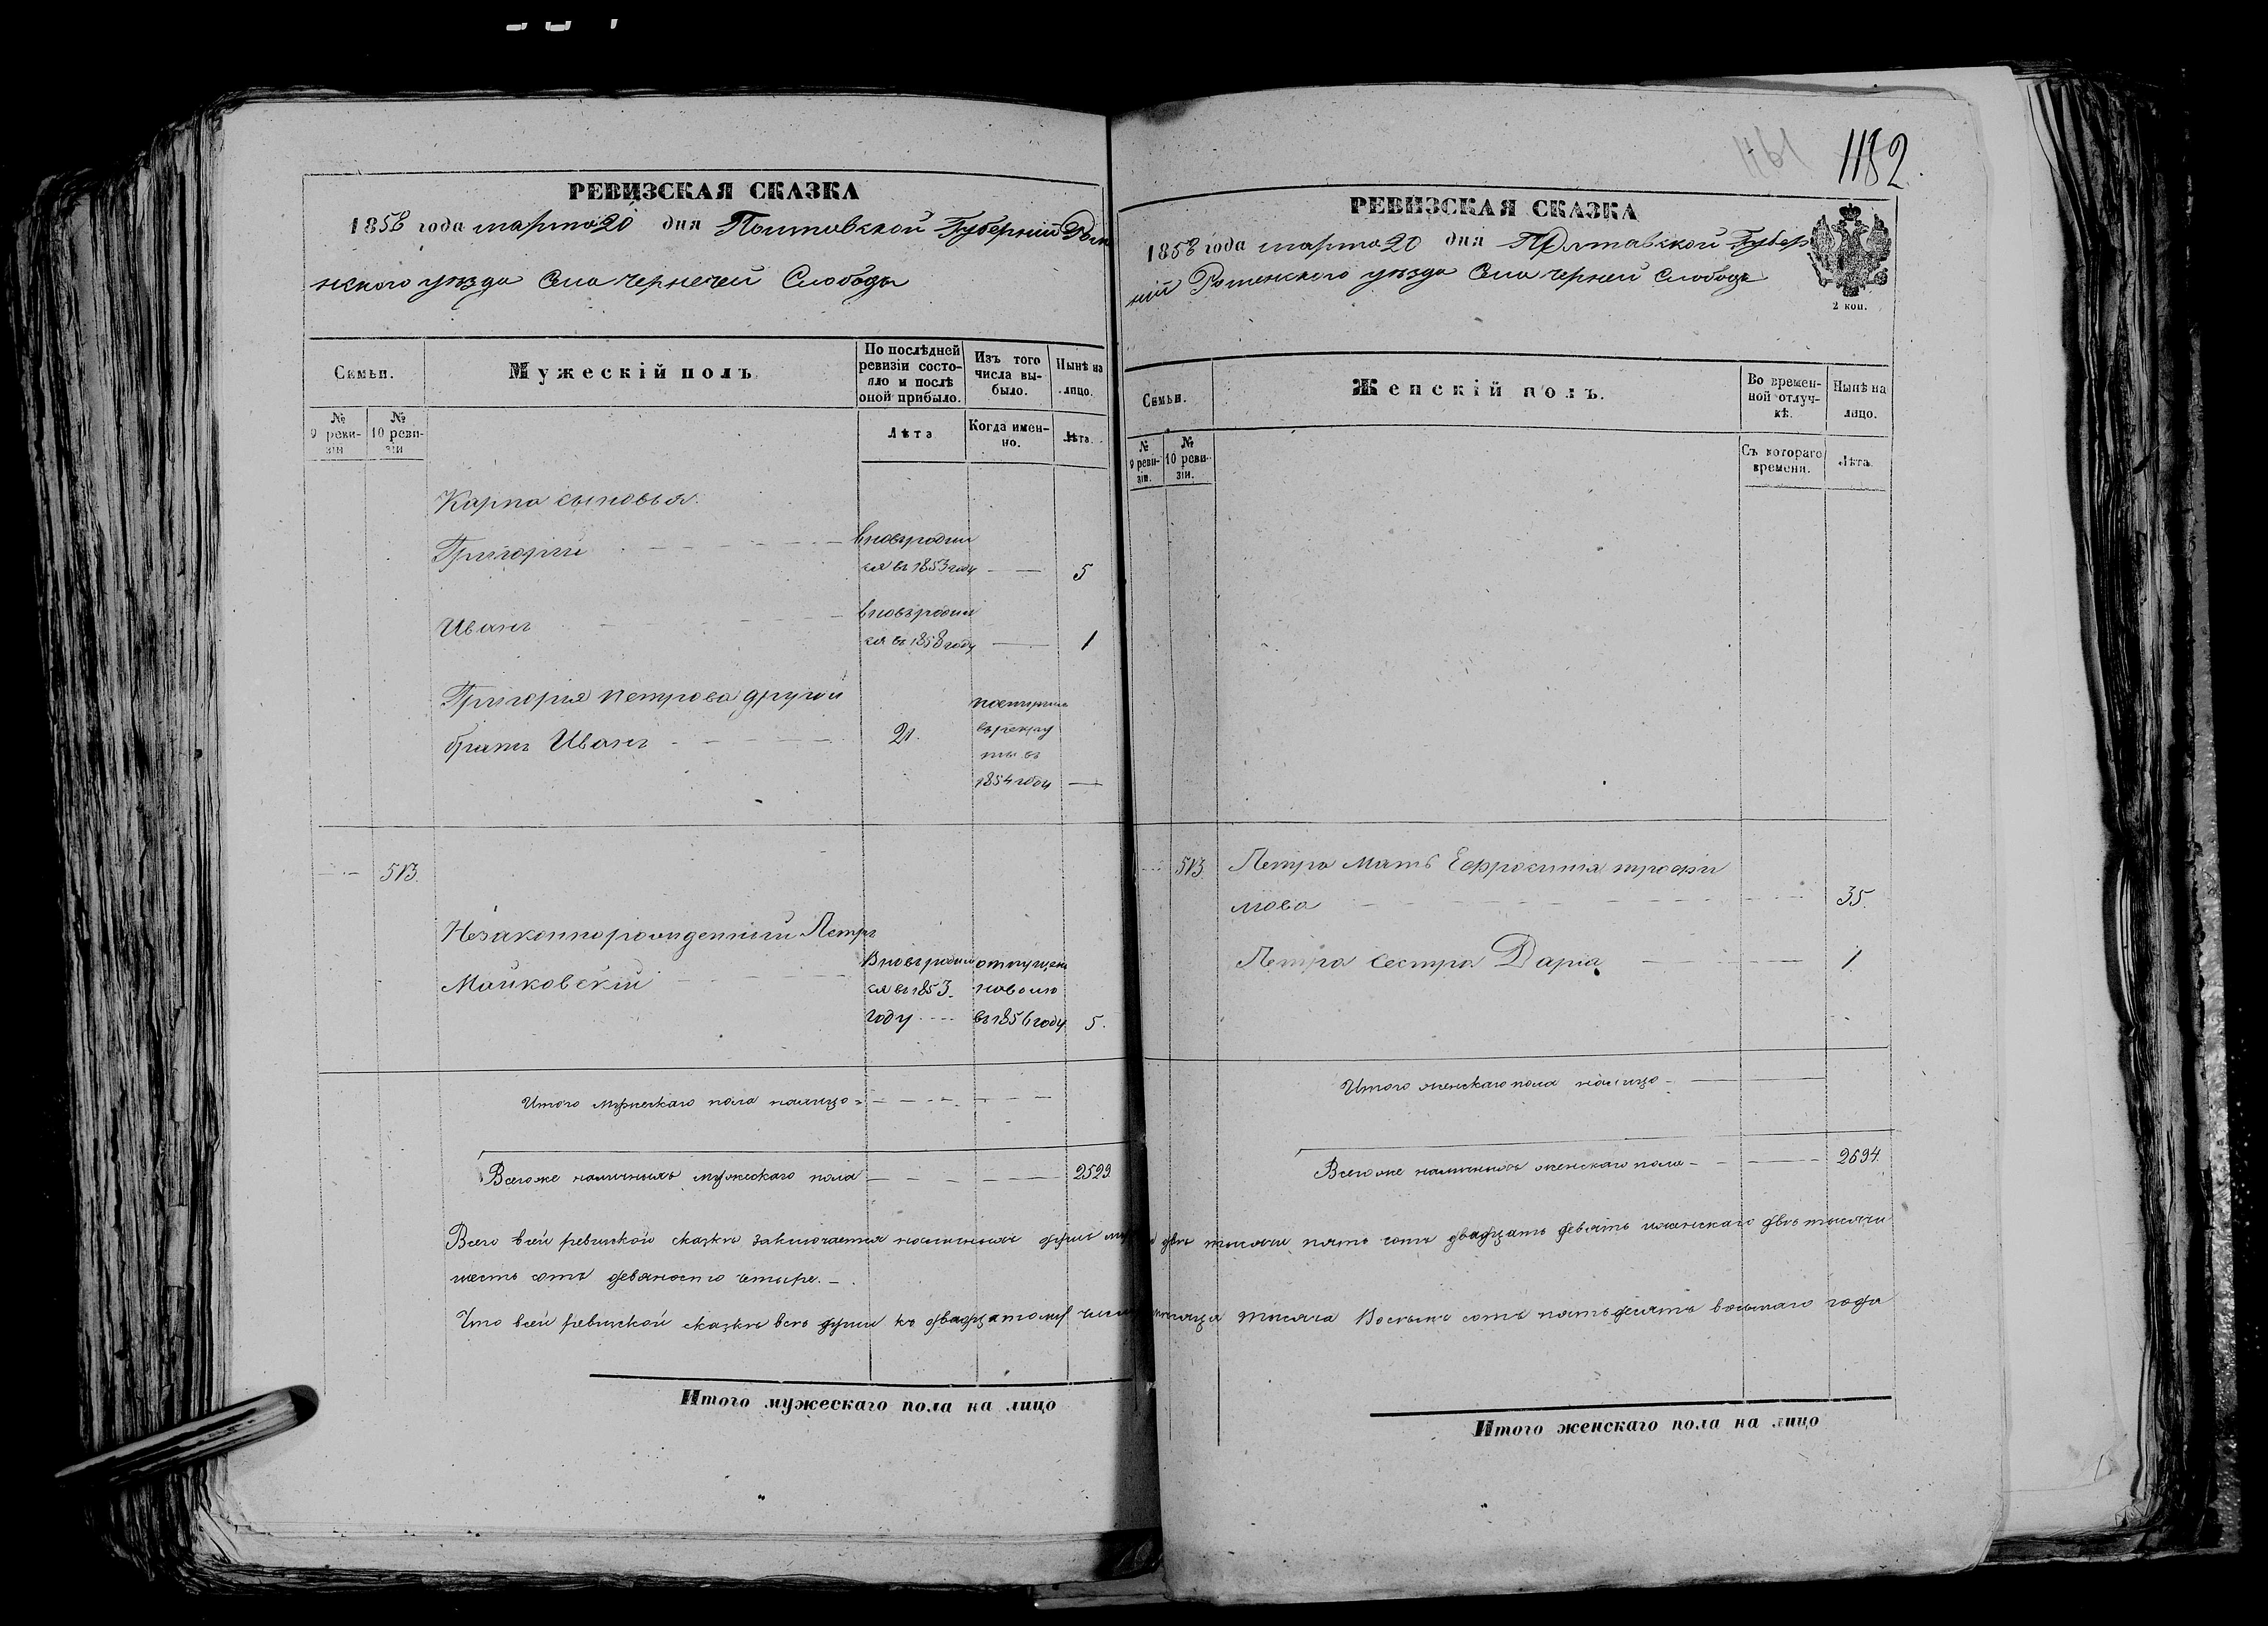 1161
1182.
РЕВИЗСКАЯ СКАЗКА
1858 года марта 20 дня Полтавской Губерній Роме
нского уѣзда Села Чернечей Слободы
Семьи.
Мужескій полъ
По послѣдней ревизіи состояло и послѣ оной прибыло.
Изъ того числа выбыло.
Нынѣ на лицо.
№ 9 ревизіи
№ 10 ревизіи
Лѣта
Когда именно.
Лѣта.
Карпа сыновья.
Григорій
вновь родил
ся въ 1853 году
5
Иванъ
вновь родил
ся въ 1858 году
1
Григорія Петрова другой
братъ Иванъ
21.
поступилъ
въ рекру
ты въ
1854 году
513.
Незаконнорожденный Петръ
Майковскій
Вновь родил
ся въ 1853.
году
отпущен
на волю
въ 1856 году
5.
Итого мужескаго пола налицо
Всего же наличныхъ мужескаго пола
2529
РЕВИЗСКАЯ СКАЗКА
1858 года марта 20 дня Полтавской Губер
ній Роменского уѣзда Села Черней Слободы
2 коп.
Семьи.
Женскій полъ.
Во временной отлучкѣ.
Нынѣ на лицо.
№ 9 ревизіи.
№ 10 ревизіи.
Съ котораго времени.
Лѣта.
513.
Петра Мать Ефросинія трофи
мова
35.
Петра сестра Дарія
1
Итого женскаго пола налицо
Всего же наличныхъ женскаго пола
2694.
Всего въ сей ревизской сказкѣ заключается наличныхъ душъ двѣ тысячи пять сотъ двадцать девять и женскаго двѣ тысячи
шесть сотъ девяносто четыре.
Что въ сей ревизской сказкѣ всѣ души къ двадцатому тысяча Восемь сотъ пятьдесятъ восьмаго года
Итого мужескаго пола на лицо
Итого женскаго пола на лицо